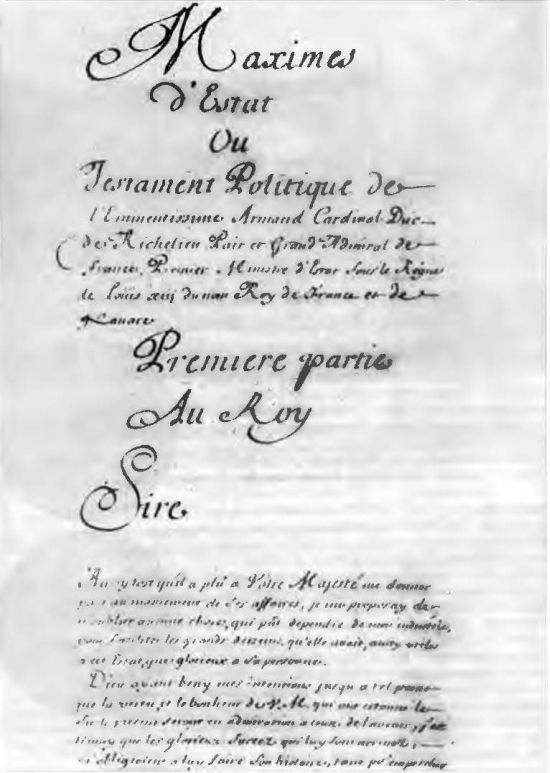 Maximes
d'Estat
Ou
Testament Politique de
l'Eminentissime Armand Cardinal Duc
de Richelieu Pair et Grand Admiral de
France, Premier Ministre d'Estat sous le Règne
de Loüis xiii du nom Roy de France et de
Navarre
Premiere partie
Au Roy
Sire
Aussy tost qu'il a plû a Vôtre Majesté me donner
part au maniement de ses affaires, je me proposay de
n'oublier aucune chose, qui pût dépendre de mon industrie,
pour faciliter les grands desseins, qu'elle avoit, aussy utiles
a cet Estat, que glorieux a sa personne.
Dieu ayant beny mes intentions jusqu'a tel
que la vertu, et le bonheur de V. M. qui ont etonné le
Siecle present seront en admiration a ceux de l'avenir, j'
que les glorieux Succez qui luy sont arrivez,
m'obligeoient a luy faire son histoire, tant pr empescher